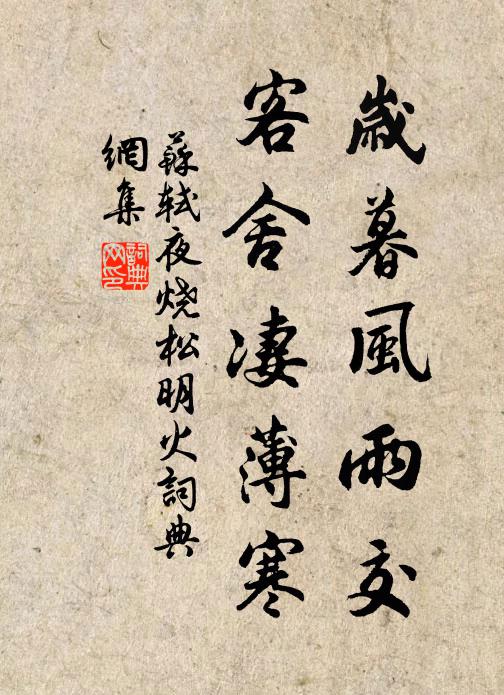 歲暮風雨交
客舍凄薄寒
蘇軾夜燒松明火詞典
網集
詞典
网印